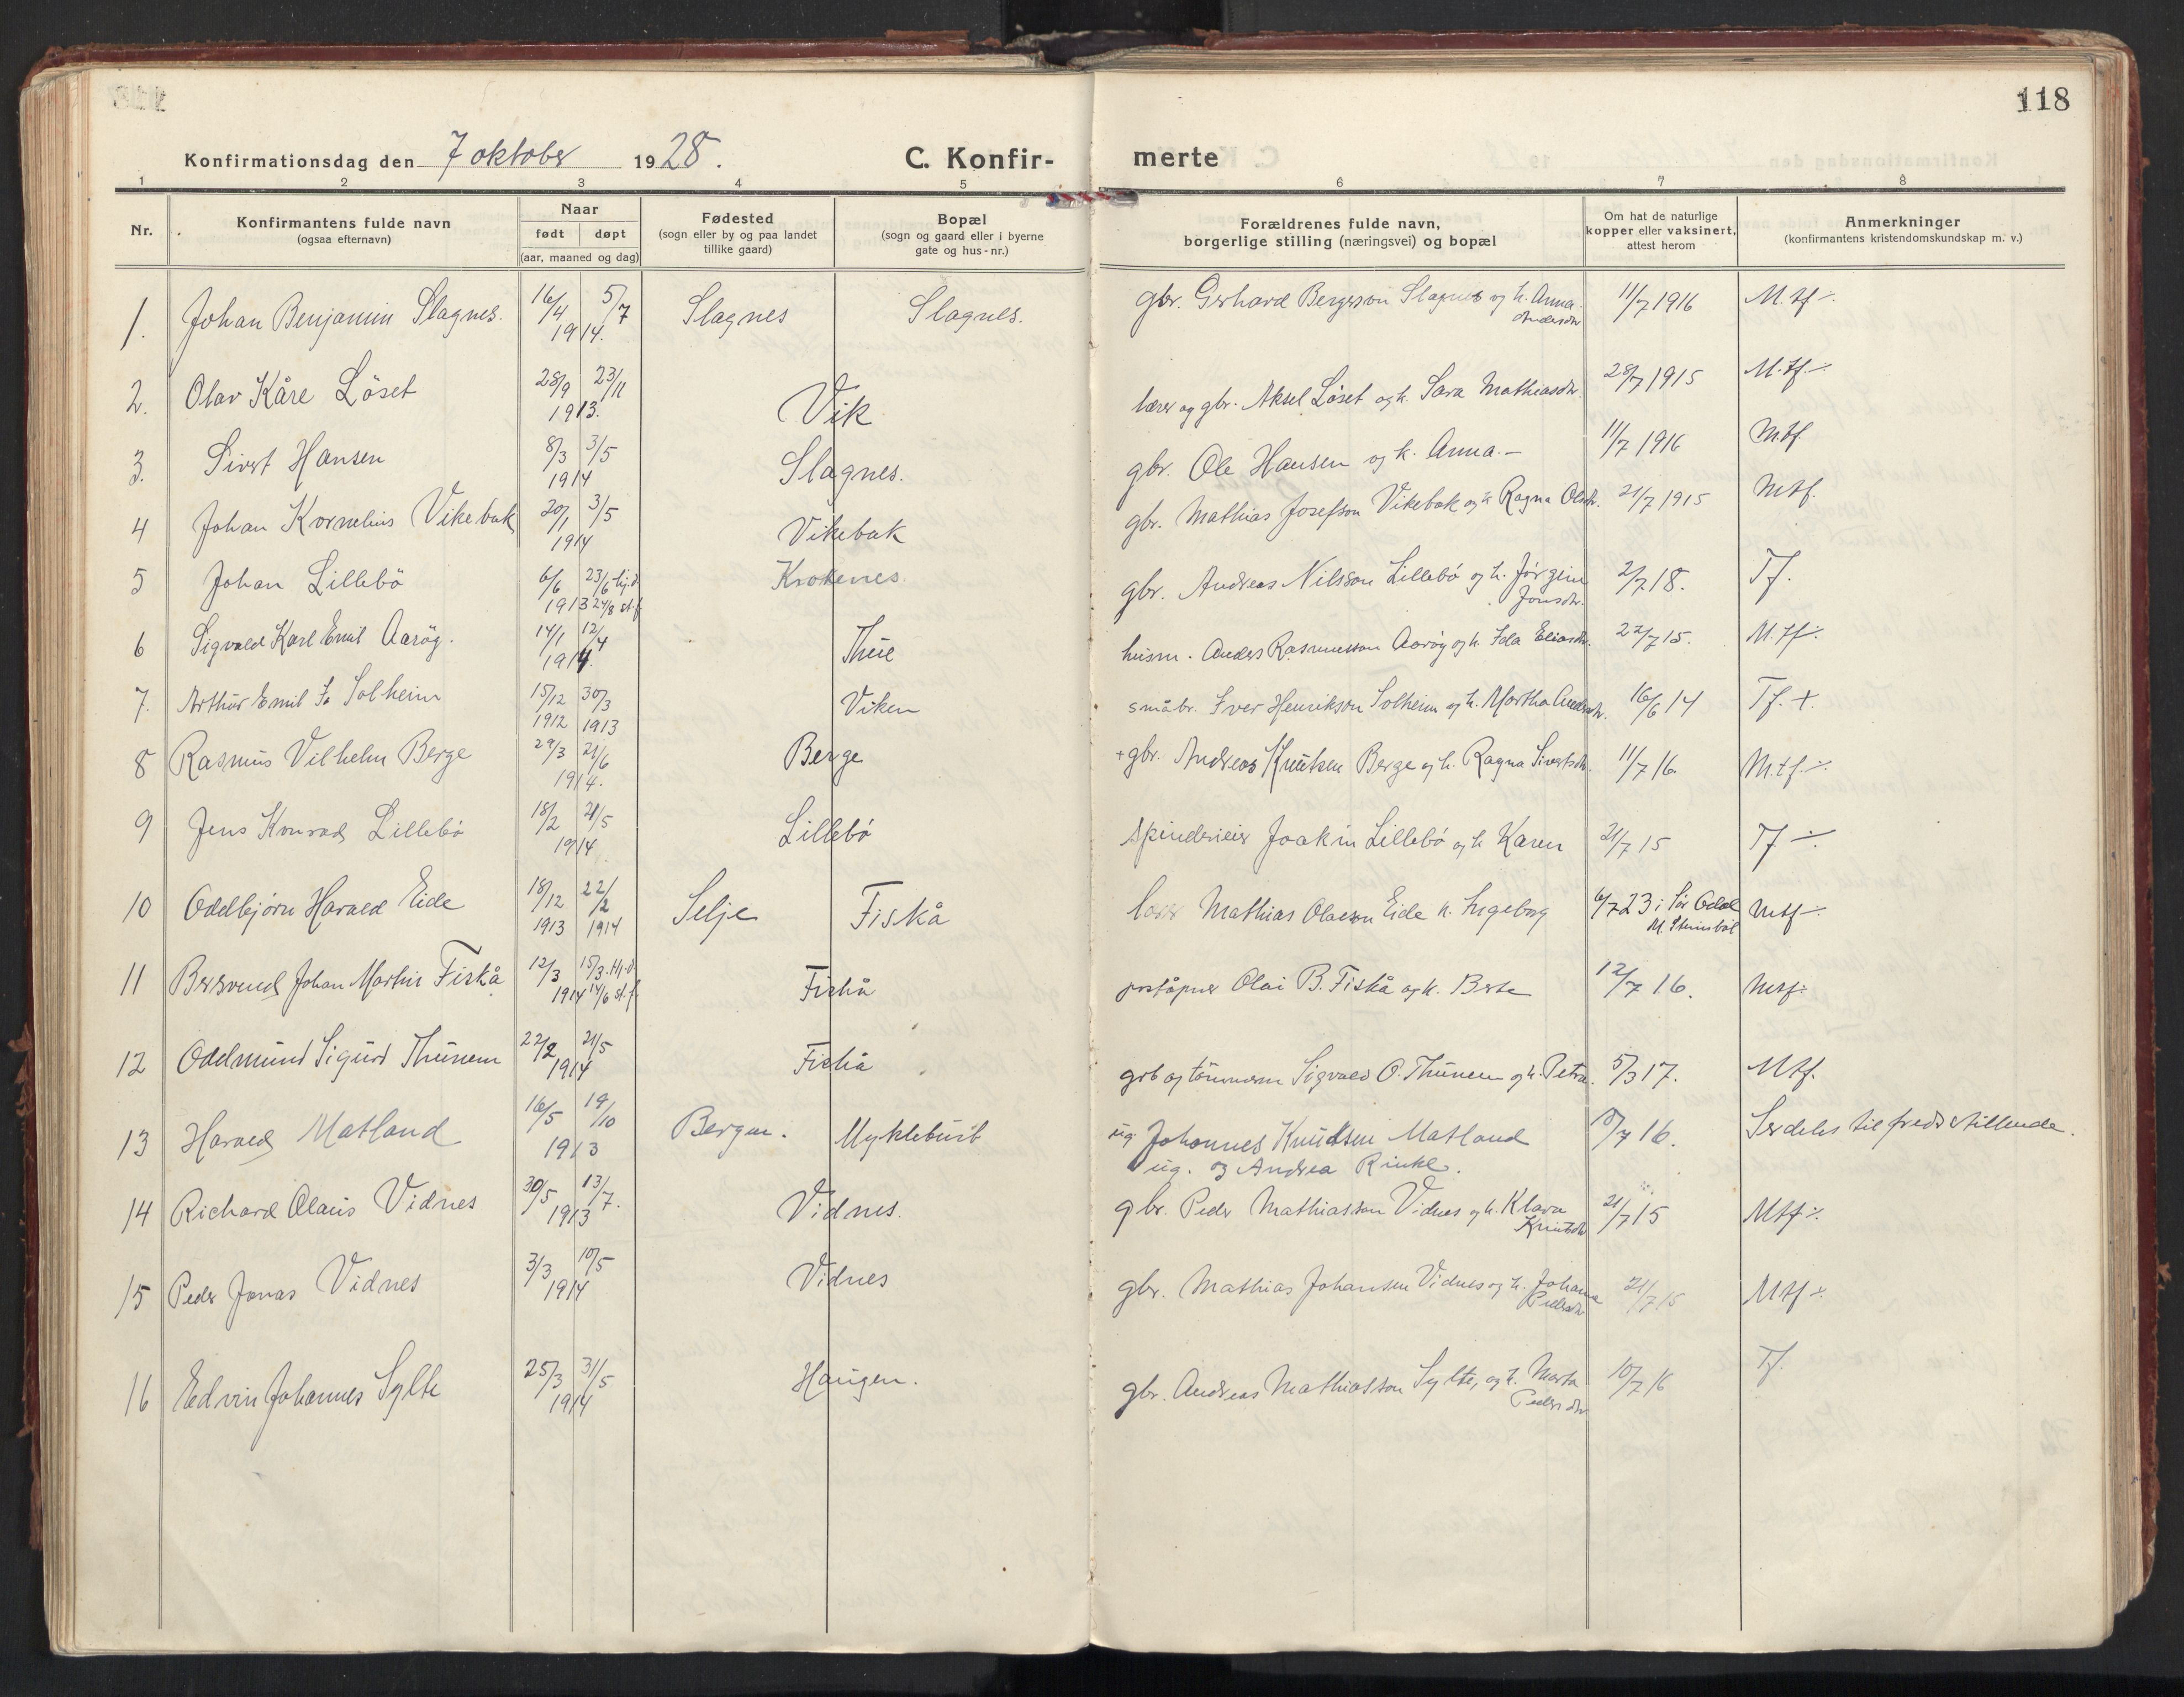 118
Konfirmationsdag den 7 oktober 1928. C. Konfir- merte
1 2 3 4 5 6 7 8
Nr. Konfirmantens fulde navn (ogsaa efternavn) Naar født døpt (aar, maaned og dag) Fødested (sogn eller by og paa landet tillike gaard) Bopæl (sogn og gaard eller i byerne gate og hus-nr.) Forældrenes fulde navn, borgerlige stilling (næringsvei) og bopæl Om hat de naturlige kopper eller vaksinert, attest herom Anmerkninger (konfirmantens kristendomskundskap m. v.)
1. Johan Benjamin Slagnes. 16/4 5/7 1914. Slagnes Slagnes. gbr. Gerhard Bergesson Slagnes og h. Anna Andersdtr 11/7 1916 M.tf
2. Olav Kåre Löset 28/9 23/11 1913. Vik lærer og gbr. Aksel Löset og h. Sara Mathiasdtr. 28/7 1915 M.tf.
3. Sivert Hansen 8/3 3/5 1914 Slagnes. gbr. Ole Hansen og h. Anna.- 11/7 1916 Mtf.
4 Johan Kornelius Vikebak 20/1 3/5 1914 Vikebak gbr. Mathias Josefson Vikebak og h Ragna Olsdtr. 21/7 1915 Mtf.
5 Johan Lillebö 6/6 23/6 hj.d 1913 24/8 st.f Krokenes. gbr. Andreas Nilsson Lillebö og h. Jörgine Jonsdtr. 2/7 18. Tf.
6 Sigvald Karl Emil Aarög. 14/1 12/4 1914. Thue husm. Anders Rasmusson Aaröy og h. Ida Eliasdtr. 22/7 15. M.tf
7. Arthur Emil I. Solheim 15/12 1912 30/3 1913 Viken småbr. Iver Henrikson Solheim og h. Martha Andersdtr. 16/6 14 Tf. +
8 Rasmus Vilhelm Berge 29/3 21/6 1914. Berge + gbr. Andreas Knutsen Berge og h. Ragna Sivertsdtr. 11/7 16 M.tf.
9 Jens Konrad Lillebö 18/2 21/5 1914 Lillebö spinderieier Joakim Lillebö og h Karen 21/7 15 Tf
10 Oddbjörn Harald Eide 18/12 1913 22/2 1914 Selje Fiskå lærer Mathias Olaeson Eide h. Ingeborg 6/7 23 i Sör Odal M. Steniböl Mtf
11 Bersvend Johan Martin Fiskå 12/3 15/3. hj.d 1914 14/6 st.f Fiskå poståpner Olai B. Fiskå og h. Berte 12/7 16. Mtf.
12 Oddmund Sigurd Thunem 22/2 21/5 1914 Fiskå grb og tömmerm Sigvald O. Thunem og h. Petra. 5/3 17. Mtf.
13 Harald Matland 16/5 19/10 1913 Bergen. Myklebust ug Johannes Knudsen Matland
ug. og Andrea Rinkl. /7 16. Serdeles tilfredsstillende.
14 Richard Olaus Vidnes 30/5 13/7. 1913 Vidnes. gbr. Peder Mathiasson Vidnes og h. Klara Knutsdtr 21/7 15 Mtf
15 Peder Jonas Vidnes 3/3 10/5 1914 Vidnes gbr. Mathias Johansen Vidnes og h. Johanna Pedersdtr 21/7 15 Mtf
16 Edvin Johannes Sylte 25/3 31/5 1914 Haugen. gbr. Andreas Mathiasson Sylte, og h. Marta Pedersdtr 10/7 16 Tf.